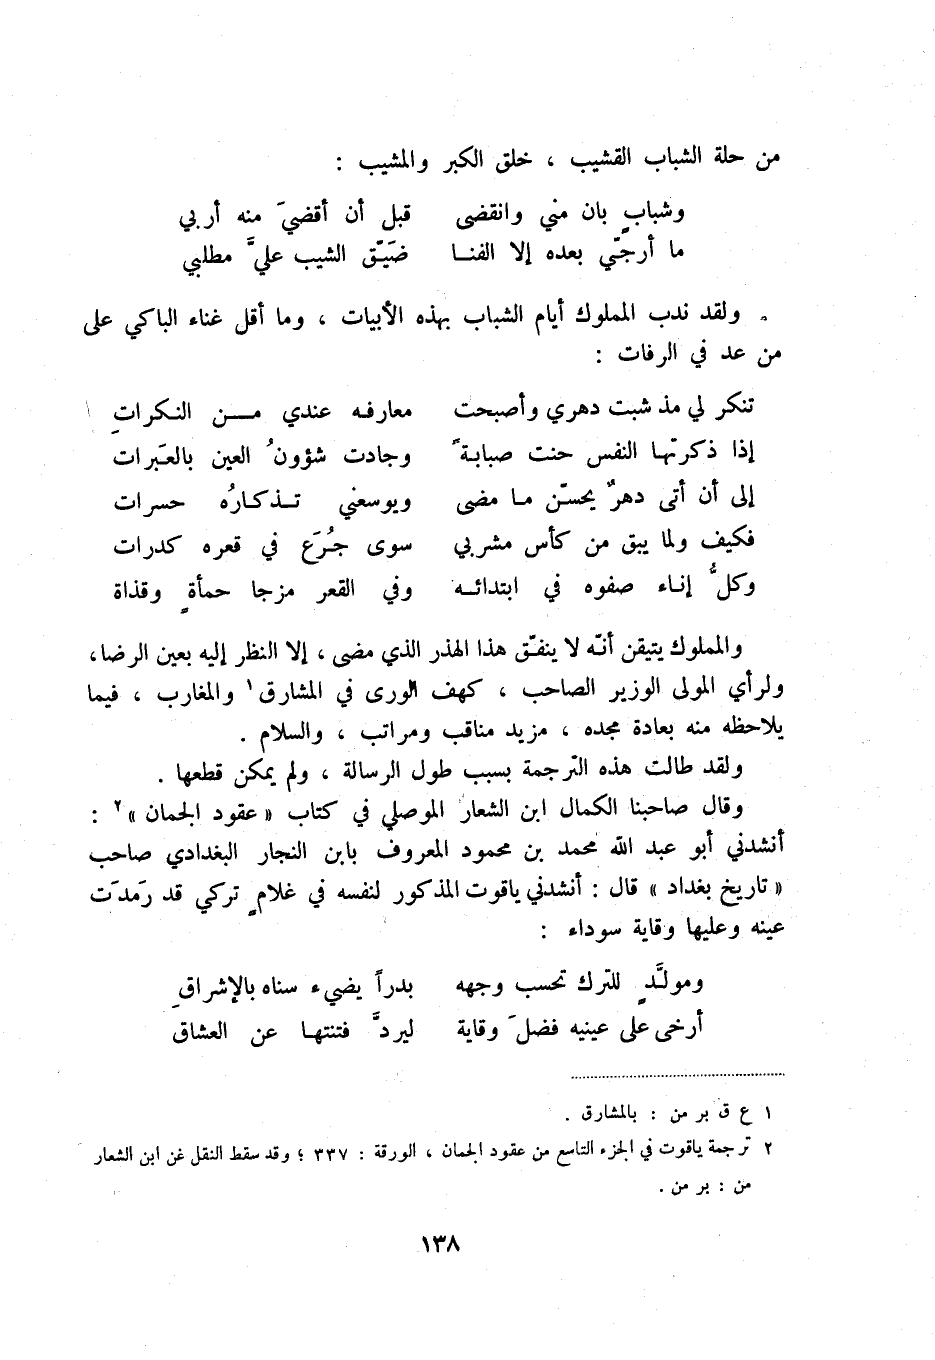 من حلة الشباب القشيب ، خلق الكبر والمشيب :
وشبابٍ بان مني وانقضى قبل أن أقضيَ منه أربي
ما أرجّي بعده إلا الفنـا ضَيّق الشيب عليَّ مطلبي
ولقد ندب المملوك أيام الشباب بهذه الأبيات ، وما أقل غناء الباكي على
من عد في الرفات :
تنكر لي مذ شبت دهري وأصبحت معارفه عندي مـن النكراتِ
إذا ذكرتها النفس حنت صبابةً وجادت شؤونُ العين بالعَبرات
إلى أن أتى دهرٌ يحسّن ما مضى ويوسعني تـذكـارُه حسرات
فكيف ولما يبق من كأس مشربي سوى جُرَع في قعره كدرات
وكلُّ إناء صفوه في ابتدائـه وفي القعر مزجا حمأةٍ وقذاة
والمملوك يتيقن أنّه لا ينفّق هذا الهذر الذي مضى ، إلا النظر إليه بعين الرضا،
ولرأي المولى الوزير الصاحب ، كهف الورى في المشارق١ والمغارب ، فيما
يلاحظه منه بعادة مجده ، مزيد مناقب ومراتب ، والسلام .
ولقد طالت هذه الترجمة بسبب طول الرسالة ، ولم يمكن قطعها .
وقال صاحبنا الكمال ابن الشعار الموصلي في كتاب « عقود الجمان »٢ :
أنشدني أبو عبد الله محمد بن محمود المعروف بابن النجار البغدادي صاحب
« تاريخ بغداد » قال : أنشدني ياقوت المذكور لنفسه في غلامٍ تركي قد رَمدَت
عينه وعليها وقاية سوداء :
ومولَّدٍ للترك تحسب وجهه بدراً يضيء سناه بالإشراقِ
أرخى على عينيه فضلَ وقاية ليردَّ فتنتها عن العشاق
١ ع ق بر من : بالمشارق .
٢ ترجمة ياقوت في الجزء التاسع من عقود الجمان ، الورقة : ٣٣٧ ؛ وقد سقط النقل عن ابن الشعار
من : بر من .
١٣٨